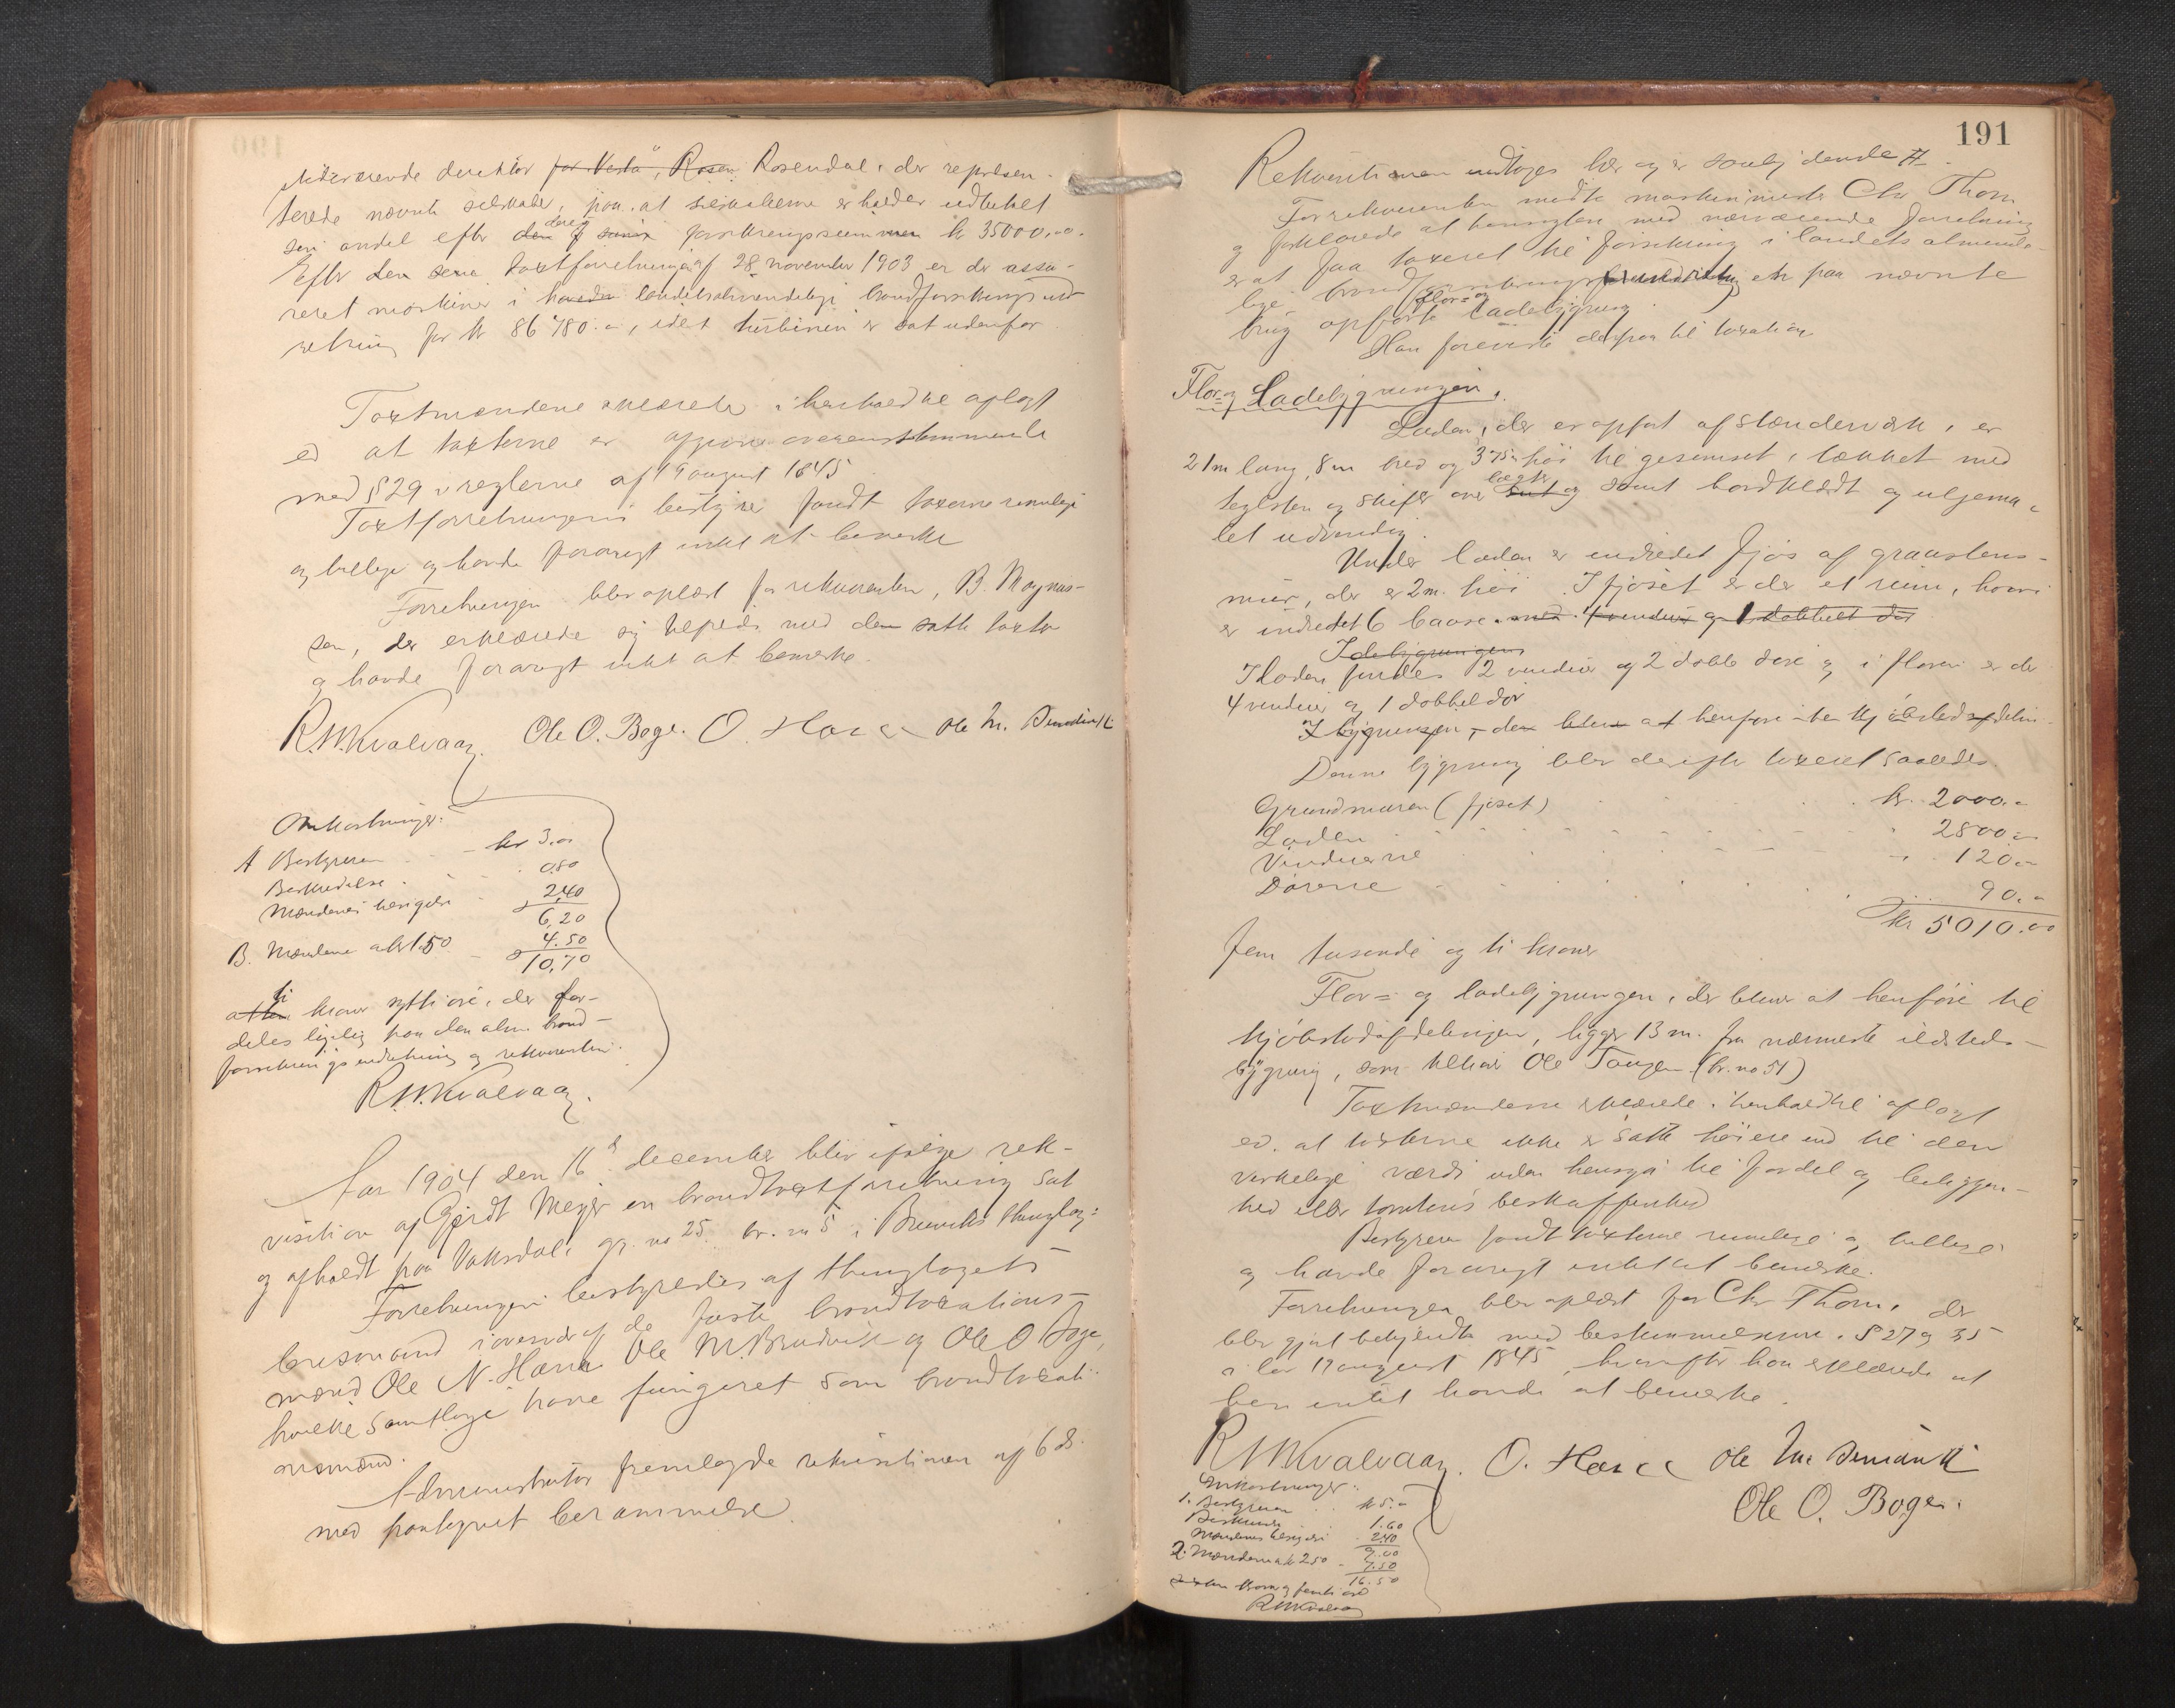 direktør for "Vesta", Rosen Rosendal, der repræsen-
terede nævnte selskaber, paa at selskaberne er holder udlukket
sin andel efter den forsikringssummen kr 35000.00.
Efter den sene taxtforretning af 28 november 1903 er de assu-
reret maskiner i landets almindelige brandforsikringsind-
retning for kr 86780.-, idet turbinen er sat udenfor
Taxtmændene erklærede i henhold til aflagt
ed at taxterne er afgivne overensstemmende
med § 29 i reglerne af 19 august 1845
Taxtforretningens bestyrer fandt taxterne rimelige
og billige og havde forøvrigt intet at bemerke
Forretningen blev oplæst for rekvirenten, B. Magnus-
sen, der erklærede sig tilfreds med den satte taxter
og havde forøvrigt intet at bemerke.
R.W.Kvalvaag. Ole O. Boge. O. Ole M.
Omkostninger:
A Bestyreren kr 3.00
Beskikkelse 0.80
Mændenes 2.40
6,20
B. Mændene a kr 1.50 4.50
10,70
atten ti kroner sytti øre, der for-
deles ligelig paa den alm. brand-
forsikringsindretning og rekvirenten.
R.W.Kvalvaag.
Aar 1904 den 16de december blev ifølge rek-
visition af Gerdt Meyer en brandtaxtforretning sat
og afholdt paa Vaksdal, gr. no 25. br. no 5 i Bruviks thinglag:
Forretningen bestyredes af thinglagets
lensmand i overvær af de faste brandtaxations-
mænd Ole N. Ole M. og Ole O Boge,
hvilke samtlige have fungeret som brandtaxati-
onsmænd.
Administrator fremlagde rekvisitionen af 6 ds.
med paategnet berammelse.
191
Rekvisitionen indtages her og er saalydende #
For rekvirenten mødte maskinmester Chr Thom
og forklarede at hensigten med nærværende forretning
er at faa taxeret til forsikring i landets alminde-
lige brandforsikringsindretning en paa nævnte
brug opførte flor- og ladebygning
Han foreviste derpaa til taxation
Flor- og Ladebygningen.
Laden, der er opført af stænderværk, er
21m lang, 8m bred og 375m høi til gesimset, tækket med
teglsten og skifer over lægter og samt bordklædt og uljema-
let udvendig.
Under laden er indredet fjøs af graastens-
mur, der er 2m. høi. I fjøset er der et rum, hvori
er indredet 6 baase. med 4 vinduer og 1 dobbelt dør
I ladebygningen
I laden findes 2 vinduer og 2 doble døre og i floren er der
4 vinduer og 1 dobbel dør
I bygningen, - den bliver at henføre
Denne bygning blev derefter taxeret saaledes.
Grundmuren (fjøset) kr. 2000.-
Laden 2800.-
Vinduerne 120.-
Dørene 90.-
kr 5010.00
Fem tusende og ti kroner
Flor- og ladebygningen, der bliver at henføre til
kjøbstadafdelingen, ligger 13 m. fra nærmeste ildsteds-
bygning, som tilhører Ole Tangen (br. no 51)
Taxtmændene erklærede i henhold til aflagt
ed, at taxterne ikke er satte høiere end til den
virkelige værdi uden hensyn til fordel og beliggen-
hed eller tomtens beskaffenhed
Bestyreren fandt taxterne rimelige og billige
og havde forøvrigt intet at bemerke.
Forretningen blev oplæst for Chr Thom, der
blev gjort bekjendt med bestemmelserne i § 27 og 35
i lov 19 august 1845, hvorefter han erklærede at
han intet havde at bemerke.
R.W.Kvalvaag. O. Ole M.
Ole O. Boge.
Omkostninger:
1. Bestyreren kr 5.-
1.60
Mændenes 2.40
9.00
2. Mændene a kr 2.50 7.50
16.50
kroner og femti øre
R.W.Kvalvaag